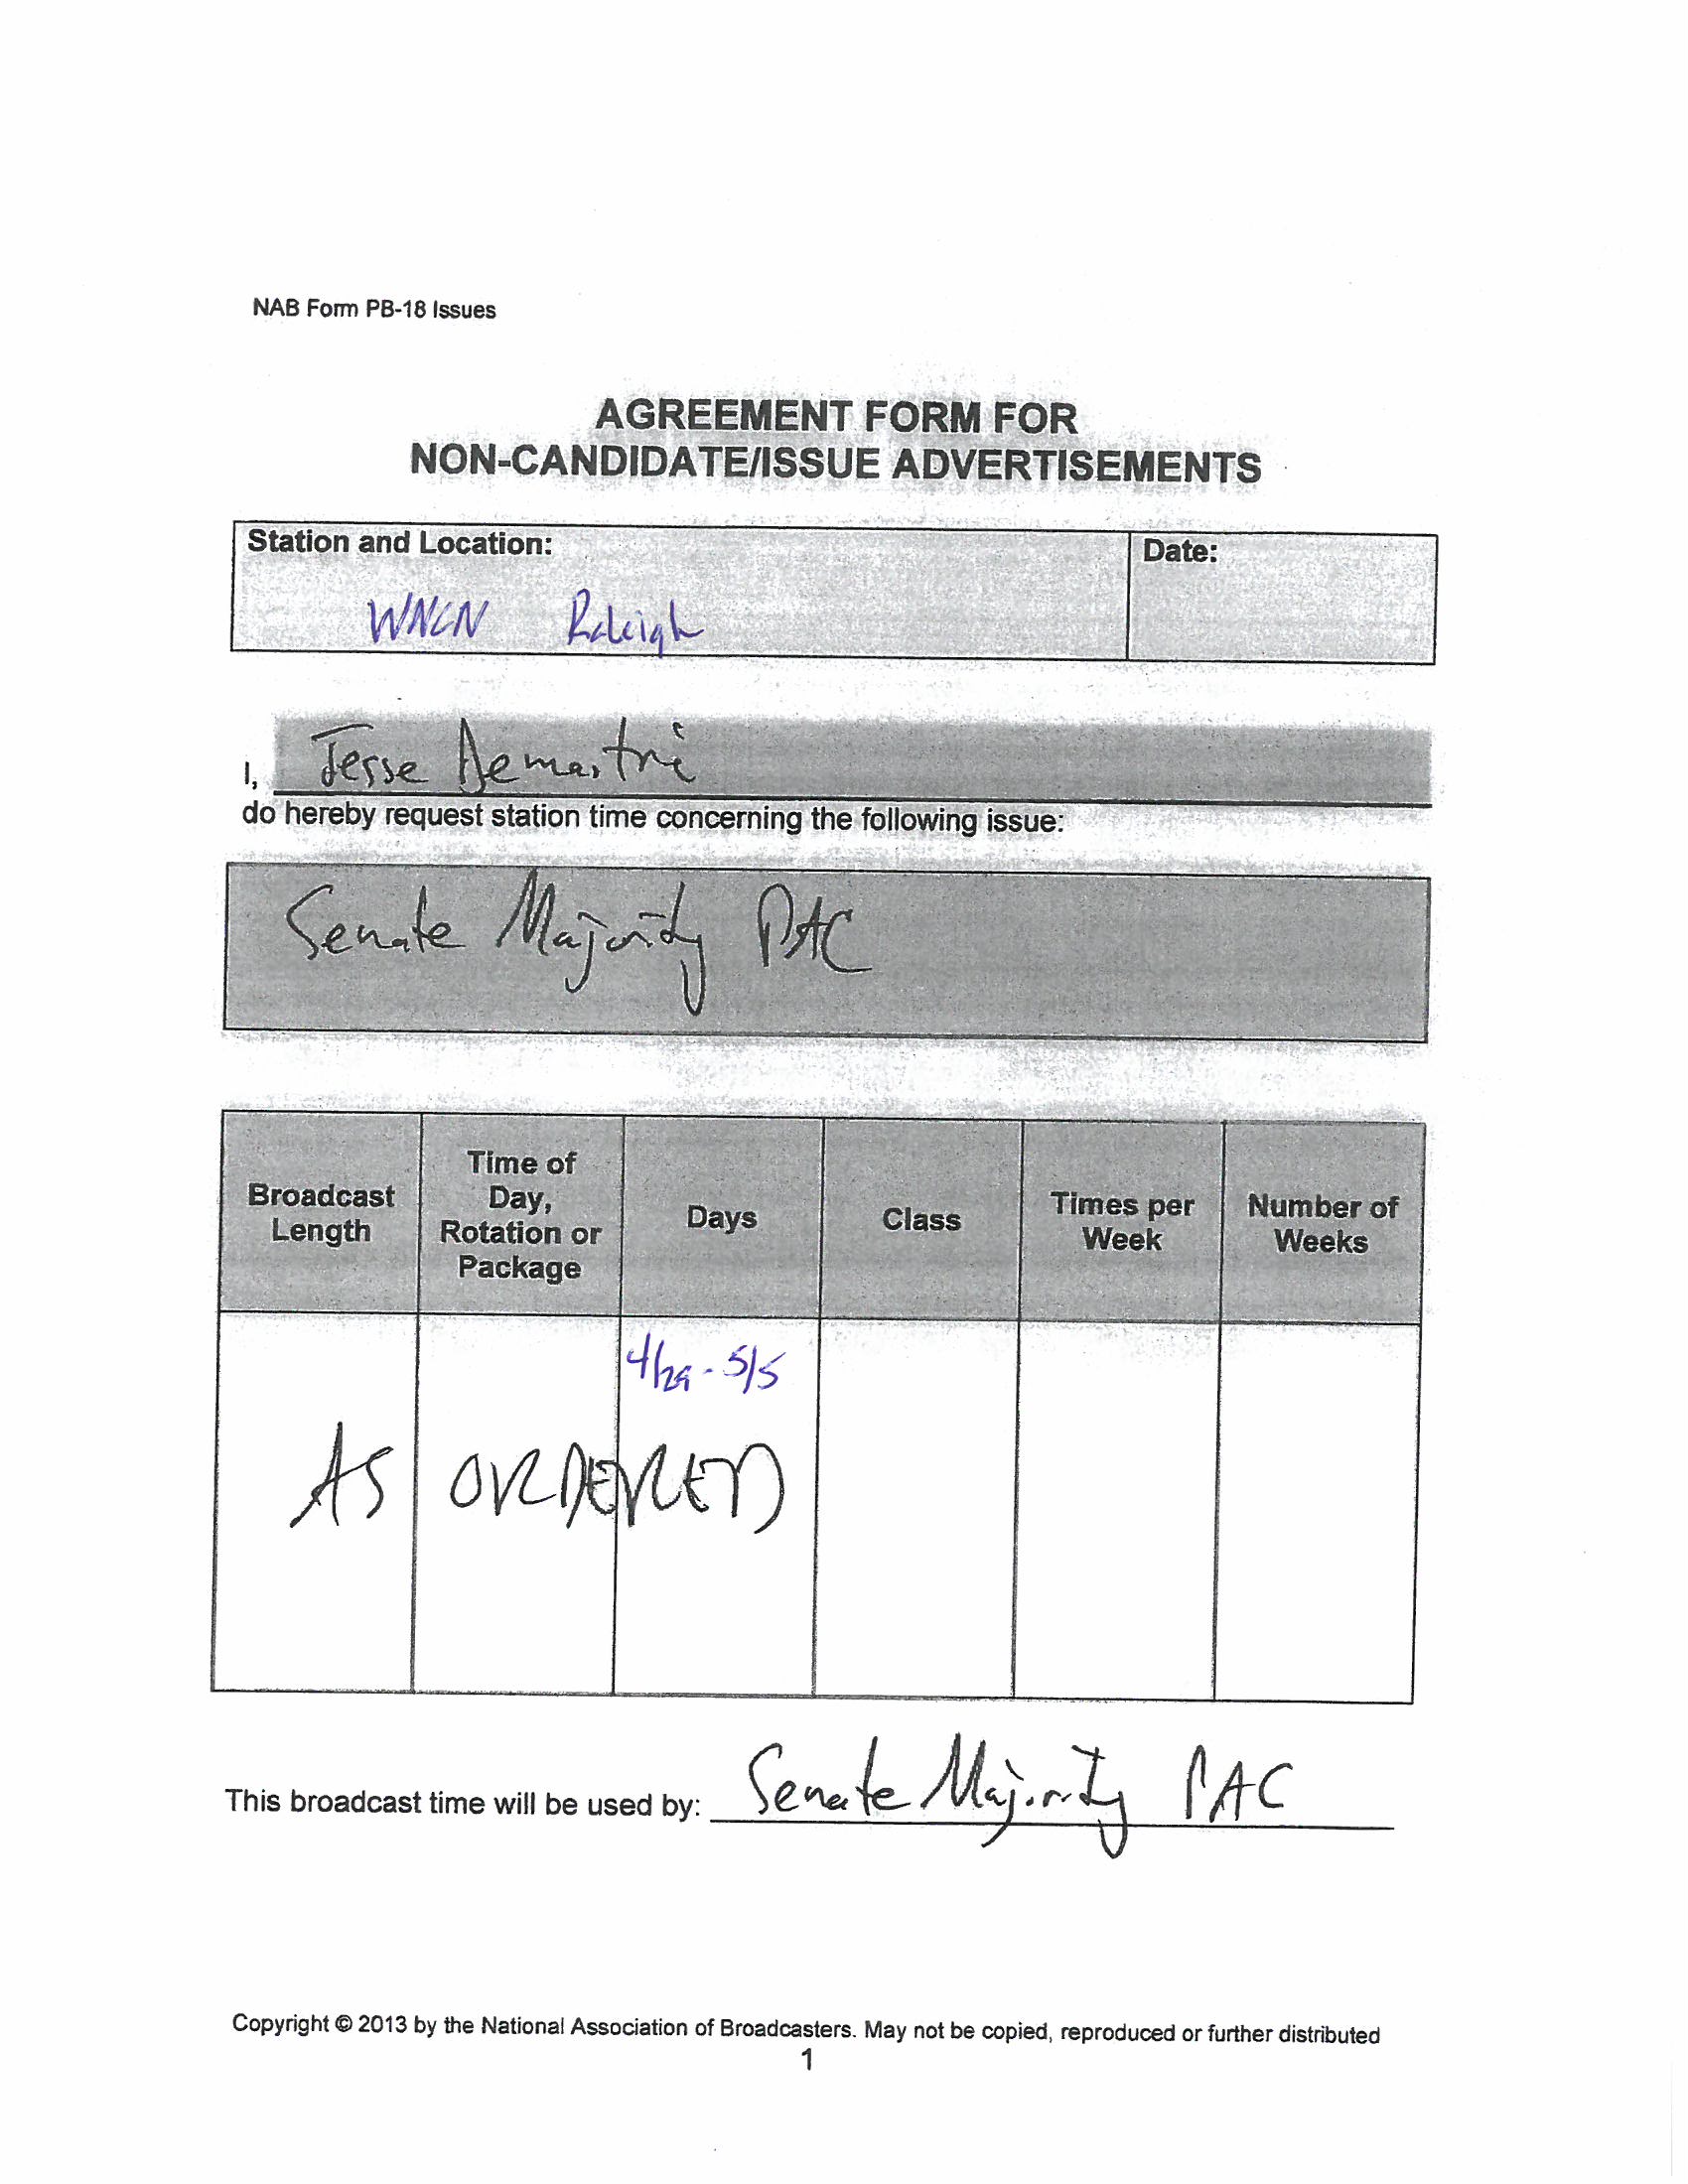 NAB Form PB-18 Issues
AGREEMENT FORM FOR
NON-CANDIDATE/ISSUE ADVERTISEMENTS
Station and Location:
Date:
WNCN Raleigh
I, Jesse Demastrie
do hereby request station time concerning the following issue:
Senate Majority PAC
Broadcast Length
Time of Day, Rotation or Package
Days
Class
Times per Week
Number of Weeks
4/29 - 5/5
AS ORDERED
This broadcast time will be used by: Senate Majority PAC
Copyright © 2013 by the National Association of Broadcasters. May not be copied, reproduced or further distributed
1